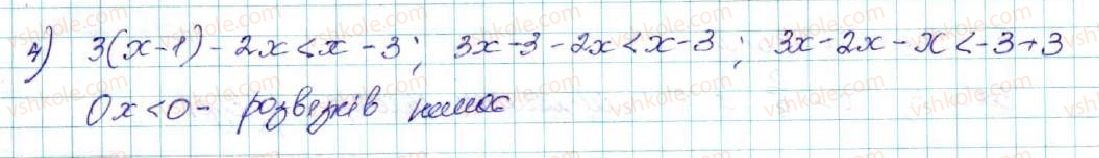 4) 3(x-1) - 2x < x - 3; 3x - 3 - 2x < x - 3; 3x - 2x - x < -3 + 3
0x < 0 - розв'язків немає